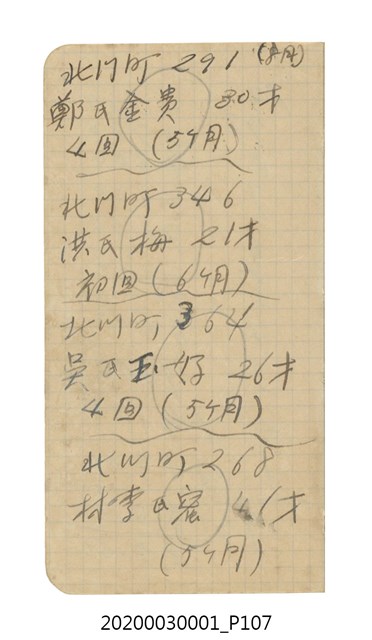 北川町 291
鄭氏金貴 30才
4回 (5ケ月)
北川町 346
洪氏梅 21才
初回 (6ケ月)
北川町 364
吴氏玉好 26才
4回 (5ケ月)
北川町 268
李氏蜜 41才
(5ケ月)
20200030001_P107